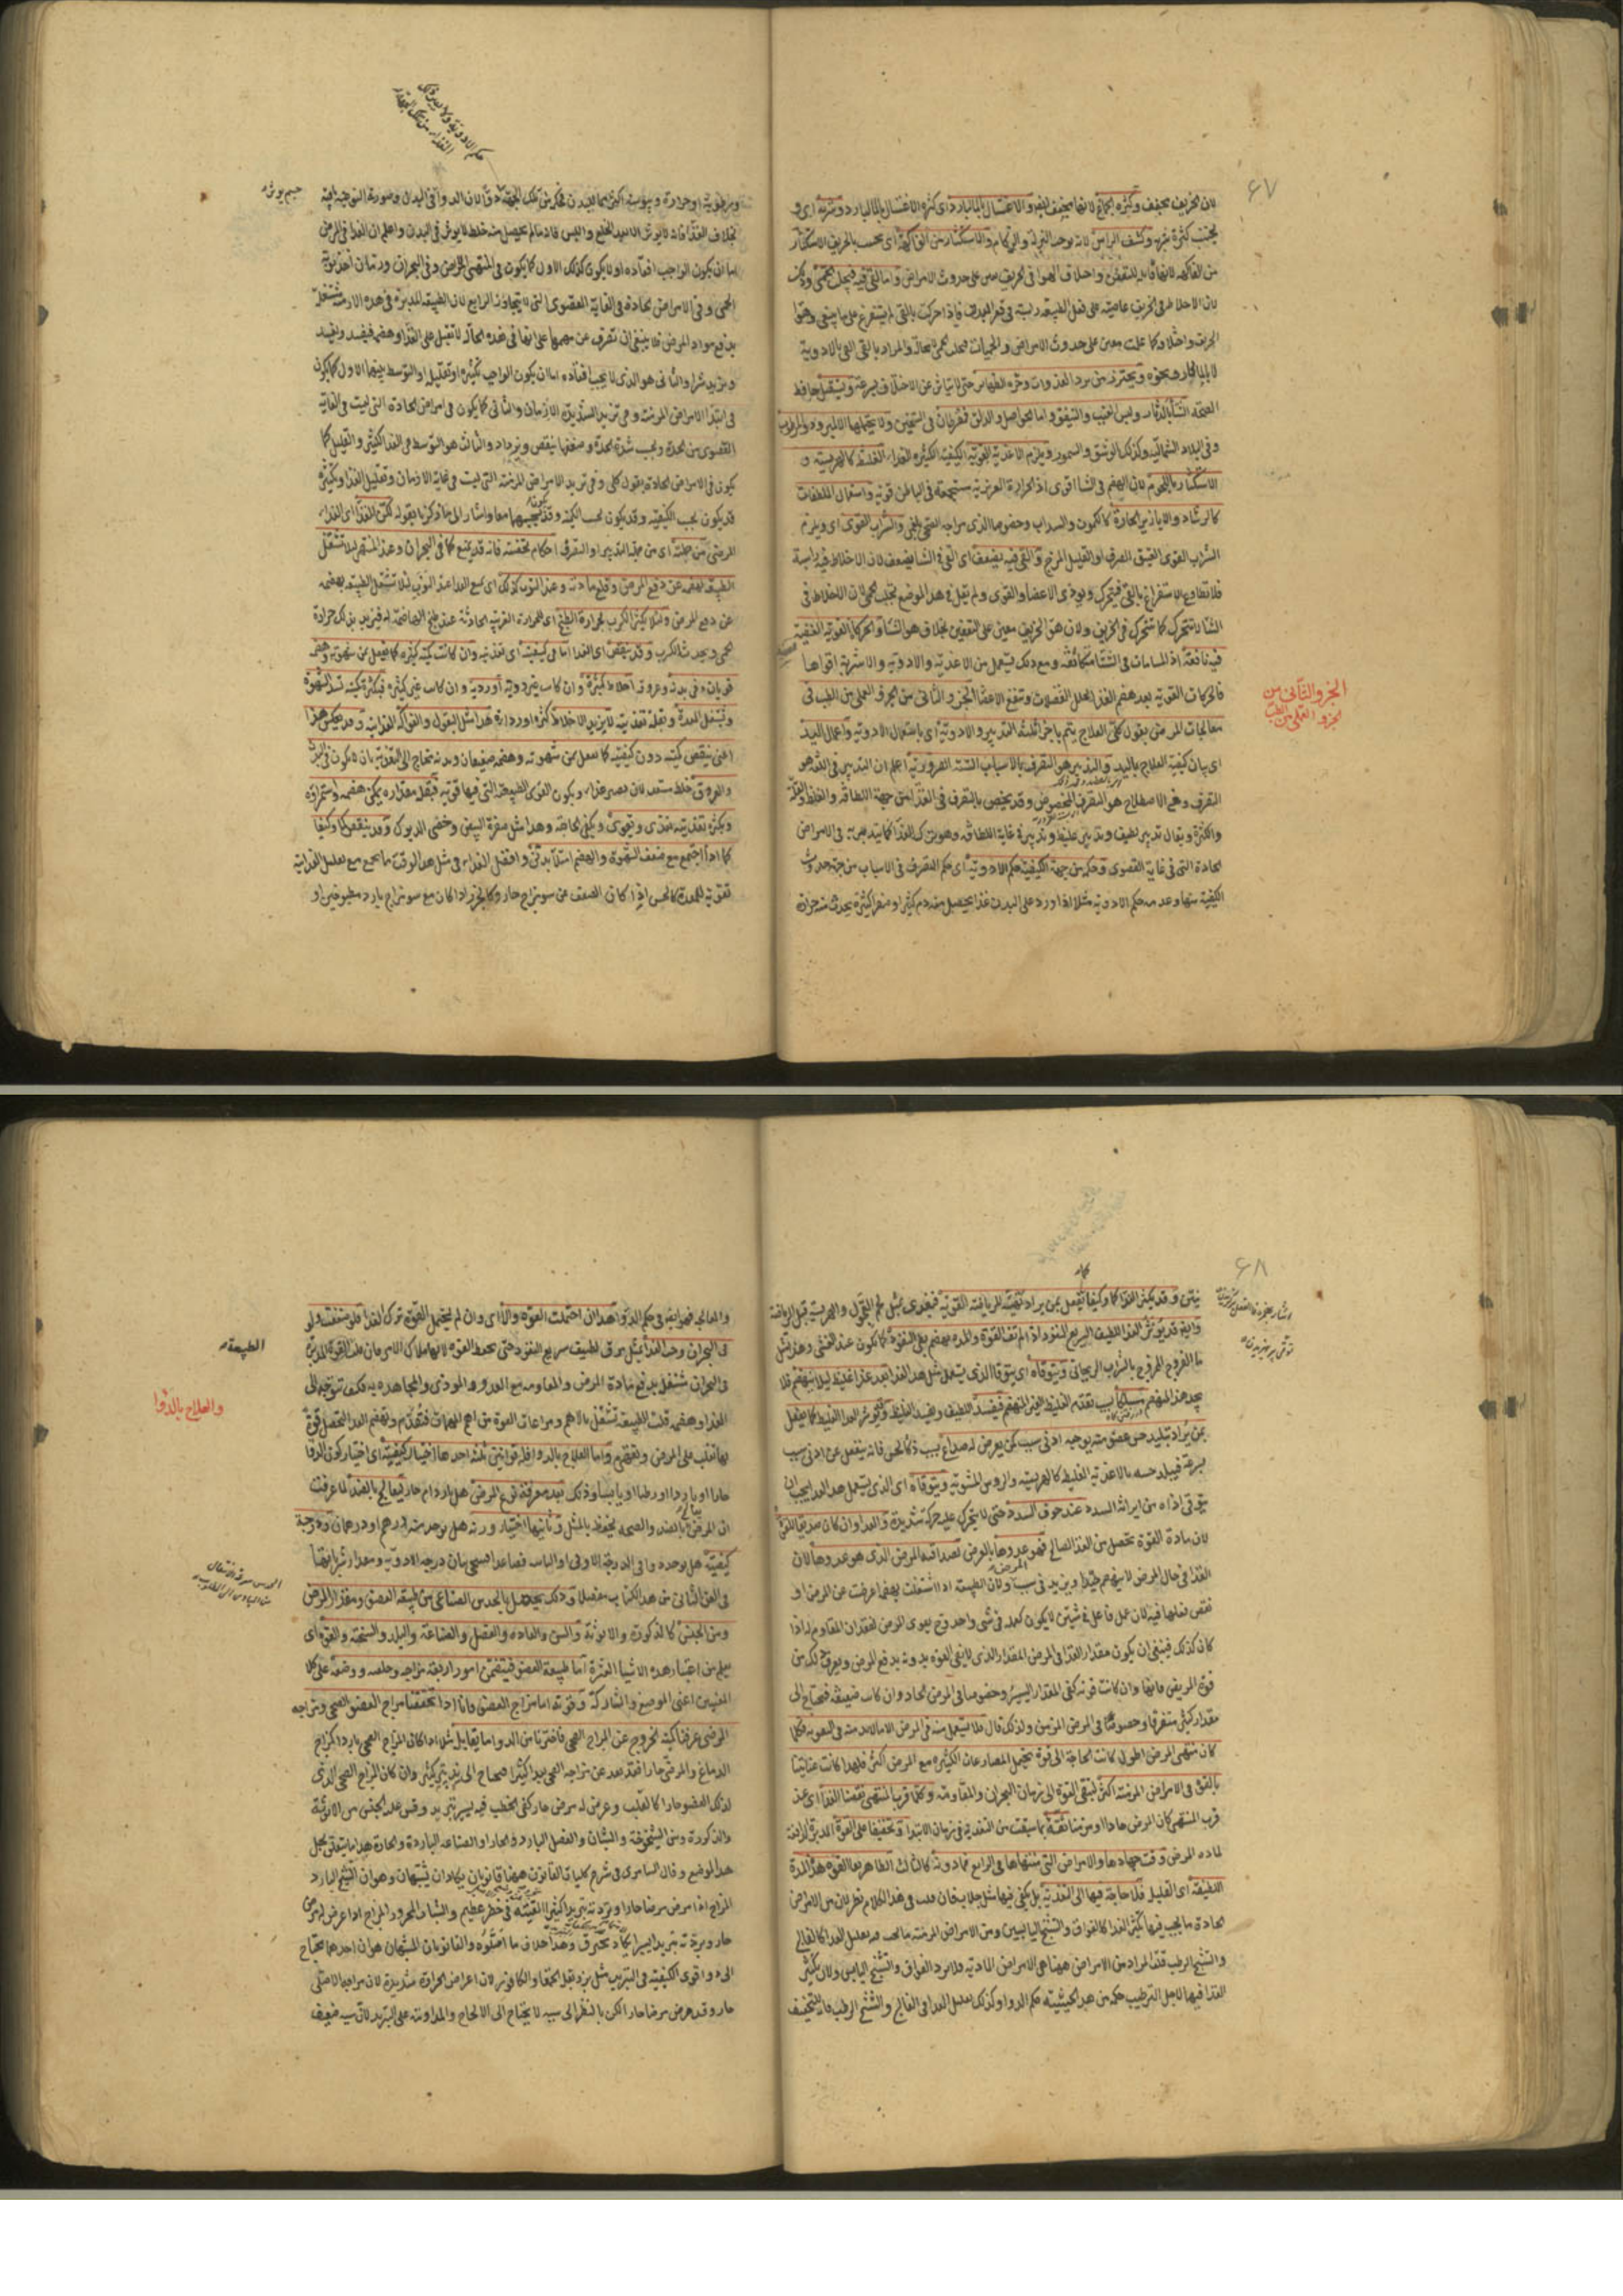 ٦٧
لان الخريف مجفف وكثرة الجماع لانها مجفف ايضا والاغتسال بالماء البارد اى كثرة الاغتسال بالماء البارد وشربه اى و
يجتنب كثرة شربه وكشف الراس لانه يوجب النزلة والزكام والاستكثار من الفاكهة اى يجتنب بالخريف الاستكثار
من الفاكهة لانها قابلة للتعفن واختلاف الهوا فى الخريف معين على حدوث الامراض واما القى فيه فيجلب الحمى وذلك
لان الاخلاط فى الخريف عاصية على فعل الطبيعة راسبة فى قعر البدن فاذا حركت بالقى لم يستفرغ على ما ينبغى وهوا
الخريف واختلافه كما علمت معين على حدوث الامراض والحميات فيجلب الحمى لا محالة والمراد بالقى القى بالادوية
لا بالماء الحار ونحوه ويحترز من برد الغدوات وحر الظهاير حتى لا يتاثر من الاختلاف بسرعة ويستقبل حافظ
الصحة الشتاء بالدثار ولبس
وفى البلاد الشمالية وكذلك الوشق والسمور ويلزم الاغذية القوية الكيفية الكثيرة الغذاء الغليظ كالهريسة و
الاستكثار باللحوم لان الهضم فى الشتا اقوى اذ الحرارة الغريزية مستجمعة فى الباطن قوية واستعمال الملطفات
كالرشاد والابازير الحارة كالكمون والسداب وخصوصا الذى مزاجه الفجى بلغمى والشراب القوى اى ويلزم
الشراب القوى العتيق الصرف او القليل المزج والقى فيه يضعف اى القى فى الشتا يضعف لان الاخلاط فيه راسبة
فلا تطاوع الاستفراغ بالقى فيتحرك ويوذى الاعضا والقوى ولم يقل فى هذا الموضع تجلب الحمى لان الاخلاط فى
الشتا لا تتحرك كما تتحرك فى الخريف ولان هوا الخريف معين على التعفين بخلاف هوا الشتا والحركات القوية العنيفة
فيه نافعة اذ المسامات فى الشتا متكاثفة ومع ذلك يستعمل من الاغذية والادوية والاشربة اقواها
فالحركات القوية بعد هضم الغذا لتحلل الفضلات وتنفع الاعضا الجزو الثانى من الجزو العملى من الطب فى
معالجات المرضى بقول كلى العلاج يتم باجزا ثلثة التدبير والادوية اى باستعمال الادوية واعمال اليد
اى بيان كيفية العلاج باليد والتدبير هو التصرف بالاسباب الستة الضرورية اعلم ان التدبير فى اللغة هو
التصرف وفى الاصطلاح هو التصرف المخصوص وقد يخص بالتصرف فى الغذا من جهة اللطافة والغلظ والقلة
والكثرة ويقال تدبير لطيف وتدبير غليظ وتدبير فى غاية اللطافة وهو ترك الغذا كما يتدبر به فى الامراض
الحادة التى فى غاية القصوى وحكمه من جهة الكيفية حكم الادوية اى حكم التصرف فى الاسباب من جهة حدوث
الكيفية منها وعدمه حكم الادوية مثلا اذا ورد على البدن غذا يحصل منه دم كثير او صفرا كثيرة يحدث منه حرارة
الجزو الثانى من
الجزو العملى من الطب
حكم الادوية
ورطوبة او حرارة ويبوسة
بخلاف الغذا فانه لا يوثر الا بعد الخلع واللبس فانه ما لم يحصل منه خلط لا يوثر فى البدن واعلم ان الغذا فى المرض
اما ان يكون الواجب افناده او لا يكون كذلك الاول كما يكون فى المنتهى المرض وفى البحران
الحمى وفى الامراض الحادة فى الغاية القصوى التى لا يتجاوز الرابع لان الطبيعة المدبرة فى هذه الازمنة مشتغلة
بدفع مواد المرض فلا ينبغى ان تصرف عن مهمها على انها فى هذه الحالة لا تقبل على الغذا وهضمه فيفسد ويفسد
ويزيد شرا والثانى هو الذى لا يجب افناده اما ان يكون الواجب تكثيره او تقليله او التوسط بينهما الاول كما يكون
فى ابتدا الامراض المزمنة
القصوى من الحدة وبحسب شدة الحدة وضعفها ينقص ويزداد والثالث هو التوسط فى الغذا الكثير والقليل كما
يكون فى الامراض الحادة بقول كلى
قد يكون بحسب الكيفية وقد يكون بحسب الكمية وقد يكون بحسبهما معا واشار الى ما ذكرنا بقوله لكن للغذا اى الغذاء
للمرضى من جملته اى من جملة التدبير او التصرف احكام تخصه فانه قد يمنع كما فى البحران وعند المنتهى لئلا تشتغل
الطبيعة بهضمه عن دفع المرض وقلع مادته وعند النوب كذلك اى يمنع الغذا عند النوب لئلا تشتغل الطبيعة بهضمه
عن دفع المرض ولئلا يكثر الكرب بحرارة الطبخ اى للحرارة الغريبة الحادثة عند طبخ الهاضمة له فيزيد بذلك حرارة
الحمى ويحدث الكرب وقد ينقص اى الغذا اما فى كيفيته اى تغذيته وان كانت كميته كثيرة كما يفعل بمن شهوته وهضمه
قويان وفى بدنه وعروقه اخلاط كثيرة
وتشغل المعدة وبقلة تغذيته لا يزيد الاخلاط كثرة او رداءة وهذا مثل البقول والفواكه الغذايية وقد يعكس هذا
اعنى ينقص كميته دون كيفيته كما يفعل بمن شهوته وهضمه ضعيفان وبدنه محتاج الى التقوية
وبكثرة تغذيته يغذى ويقوى ويكفى الحاجة وهذا مثل صفرة البيض وخصى الديوك وقد ينقص كما وكيفا
كما اذا اجتمع مع ضعف الشهوة والهضم امتلاء بدنى وافضل الغذاء فى مثل هذا الوقت ما يجمع مع تقليل الغذاية
تقوية للمعدة كالحسى اذا كان الضعف من سو مزاج حار وكالجزر اذا كان مع سو مزاج بارد مطبوخين او
٦٨
نيئين وقد يكثر الغذا كما وكيفا كما نفعل بمن يراد تهيئته للرياضة القوية فيغذى بمثل لحم البقول والهريسة قبل الرياضة
وايضا قد يوثر الغذا اللطيف السريع النفوذ اذا لم تف القوة والمدة بهضم بطى النفوذ كما يكون عند الغشى وهذا مثل
ما الفروج الممزوج بالشراب الريحانى ويتوقاه اى يتوقا الذى يستعمل مثل هذا الغذا بعد غذا غليظ ليلا ينهضم فلا
يجد هذا المنهضم مسلكا بسبب تقدم الغليظ الغير المنهضم فيفسد اللطيف ويفسد الغليظ وقد يوثر الغذا الغليظ كما يفعل
بمن يراد تبليد حس عضو منه يوجبه ادنى سبب كمن يعرض له صداع بسبب ذكا الحس فانه ينفعل عن ادنى سبب
بسرعة فيبلد حسه بالاغذية الغليظة كالهريسة والروس المشوية ويتوقاه اى الذى يستعمل هذا الغذا يجب ان
يتوقى اذاه من ايراثه السدد عند خوف السدد حتى لا يتحرك عليه حركة شديدة والغذا وان كان صديقا للقوة
لان مادة القوة تحصل من الغذا الصالح فهو عدوها بالعرض لصداقته المرض الذى هو عدوها لان
الغذا فى حال المرض لا ينهضم جيدا ويزيد فى سبب المرض ولان الطبيعة اذا اشتغلت بهضمه اعرضت عن المرض او
نقص فعلها فيه لان عمل فاعل فى شيئين لا يكون كعمله فى شى واحد فح يقوى المرض لفقدان المقاوم له اذا
كان كذلك فينبغى ان يكون مقدار الغذا فى المرض المقدار الذى لا يفى القوة بدونه بدفع المرض ويعرف ذلك من
قوة المريض فانها وان كانت قوية كفى المقدار اليسير وخصوصا فى المرض الحاد وان كانت ضعيفة فيحتاج الى
مقدار كثير متفرقا وخصوصا فى المرض المزمن ولذلك قال فلا يستعمل منه فى المرض الا ما لا بد منه فى التقوية وكلما
كان منتهى المرض اطول كانت الحاجة الى قوة تحتمل المصارعات الكثيرة مع المرض اكثر فلهذا كانت عنايتنا
بالقوة فى الامراض المزمنة اكثر لتبقى القوة الى زمان البحران والمقاومة وكلما قرب المنتهى نقصنا الغذا اى عند
قرب المنتهى كان المرض حادا او مزمنا ثقة بما سبقت من التغذية فى زمان الابتدا وتخفيفا على القوة المدبرة الدافعة
لمادة المرض وقت جهادها والامراض التى منتهاها فى الرابع فما دونه كالثالث الظاهر بقا القوة هذه المدة
اللطيفة اى القليلة فلا حاجة فيها الى التغذية بل يكفى فيها مثل جلاب فان قلت فى هذا الكلام نظر لان من الامراض
الحادة ما يجب فيها تكثير الغذا كالفواق والتشنج اليابسين ومن الامراض المزمنة ما يجب فيه تقليل الغذا كالفالج
والتشنج الرطب قلت المراد من الامراض ههنا هى الامراض المادية فلا يرد الفواق والتشنج اليابس ولان تكثير
الغذا فيها لاجل الترطيب حكمه من هذه الحيثية حكم الدوا وكذلك تقليل الغذا فى الفالج والتشنج الرطب فانه للتخفيف
الطبيعة
والعلاج بالدوا
والمعالجة فهو ايضا فى حكم الدوا هذا ان احتملت القوة والا اى وان لم يحتمل القوة ترك الغذا فلو ضعفت ولو
فى البحران وجب الغذا بمثل مرق لطيف سريع النفوذ حتى يحفظ القوة لانها ملاك الامر فان قلت القوة المدبرة
فى البحران تشتغل بدفع مادة المرض والمقاومة مع العدو والموذى والمجاهدة به فكيف تتوجه الى
الغذا وهضمه قلت الطبيعة تشتغل بالاهم ومراعات القوة من اهم المهمات فتقدم وتهضم الغذا لتحصل قوة
بها تغلب على المرض وتقهره واما العلاج بالدوا فله قوانين ثلثة احدها اختيار كيفيته اى اختيار كون الدوا
حارا او باردا او رطبا او يابسا وذلك بعد معرفة نوع المرض هل بارد ام حار ليعالج بالضد لما عرفت
ان المرض يعالج بالضد والصحة يحفظ بالمثل وثانيها اختيار وزنه هل يوخذ منه درهم او درهمان ودرجة
كيفيته هل يوخذ دوا فى الدرجة الاولى او الثانية فصاعدا وسيجى بيان درجة الادوية ومقدار شرباتها
فى الفن الثانى من هذا الكتاب مفصلا وذلك يحصل بالحدس الصناعى من طبيعة العضو ومقدار المرض
ومن الجنس كالذكورة والانوثة والسن والعادة والفصل والصناعة والبلد والسحنة والقوة اى
يعلم من اعتبار هذه الاشيا العشرة اما طبيعة العضو فيتضمن امور اربعة مزاجه وخلقته ووضعه على كلا
المعنيين اعنى الموضع والمشاركة وقوته اما مزاج العضو فانا اذا تحققنا مزاج العضو الصحى ومزاجه
المرضى عرفنا كمية الخروج عن المزاج الصحى فاخترنا من الدوا ما يقابله مثلا اذا كان المزاج الصحى باردا كمزاج
الدماغ والمرض حارا فقد بعد عن مزاجه الصحى بعدا كثيرا فيحتاج الى تبريد كثير وان كان المزاج الصحى الذى
لذلك العضو حارا كالقلب وعرض له مرض حار كفى الخطب فيه يسير تبريد وقس على الجنس من الانوثة
والذكورة وسن الشيخوخة والشبان والفصل البارد والحار والصناعة الباردة والحارة هذا ما يتعلق بحل
هذا الموضع وقال السامرى فى شرح كليات القانون ههنا قانونان يكادان يشتبهان وهو ان الشيخ البارد
المزاج اذا مرض مرضا حارا وبردته تبريدا كثيرا القيته فى خطر عظيم والشاب المحرور المزاج اذا عرض له مرض
حار وبردته تبريدا يسيرا يكاد يحترق وهذا خلاف ما اصلوه والقانونان المشتبهان هو ان احدهما يحتاج
الى دوا قوى الكيفية فى التبريد مثل بزر بقلة الحمقا والكافور لان اعراض الحرارة شديدة لان مزاجه الاصلى
حار وقد عرض مرضا حارا لكن بالنظر الى سببه لا يحتاج الى الالحاح والمداومة على التبريد لان سببه ضعيف